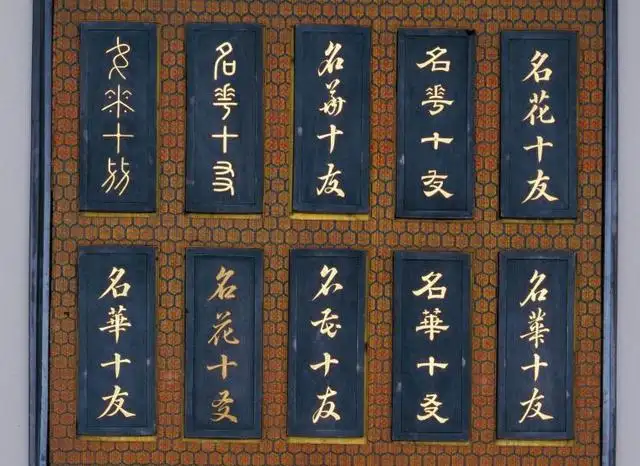 名花十友
名花十友
名華十友
名花十友
名十友
名華十友
名華十友
名花十友
名花十友
名華十友